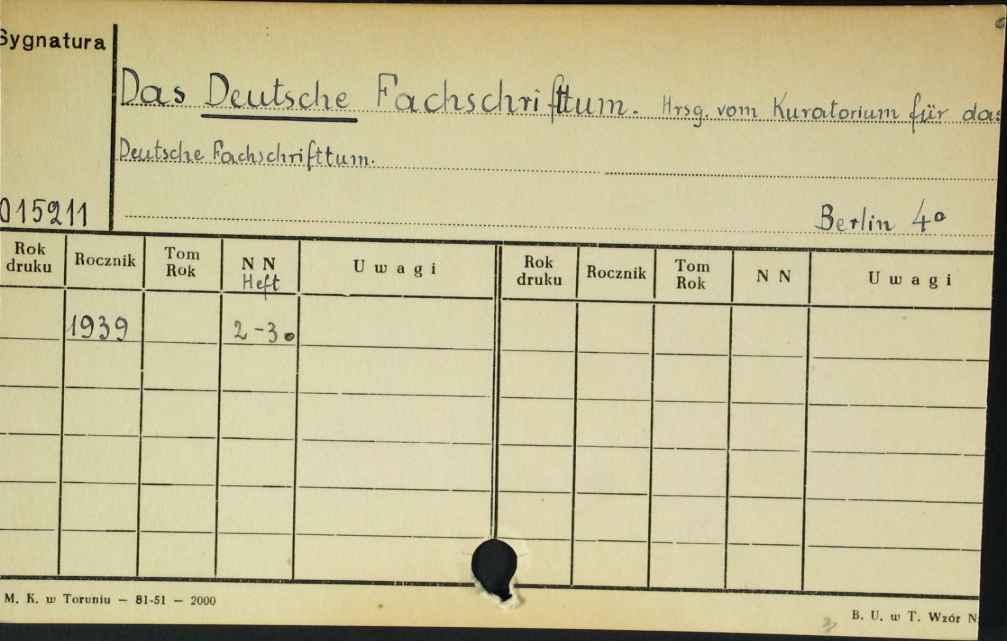 Sygnatura
Das Deutsche Fachschrifttum. Hrsg. vom Kuratorium für das
Deutsche Fachschrifttum.
015211
Berlin 4º
Rok druku Rocznik Tom Rok N N Heft U w a g i Rok druku Rocznik Tom Rok N N U w a g i
1939 2-3.
M. K. w Toruniu — 81-51 — 2000
B. U. w T. Wzór N